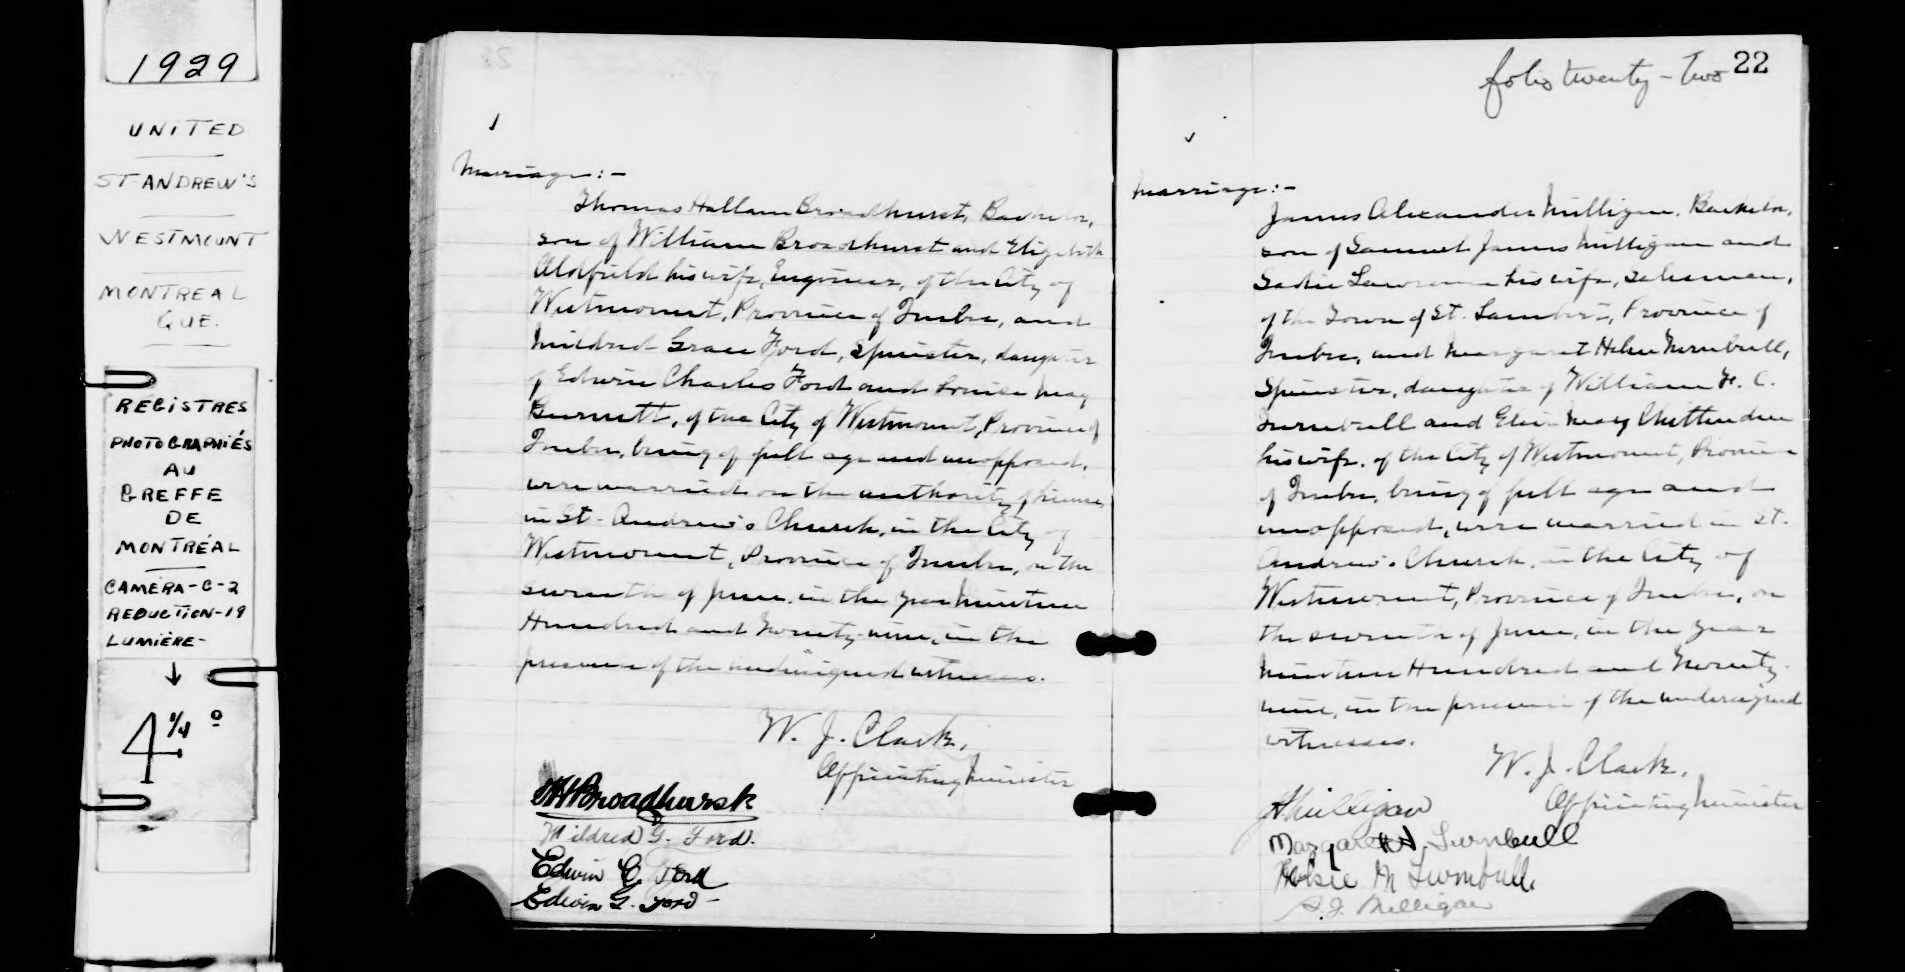 1929
UNITED
ST-ANDREW'S
WESTMOUNT
MONTREAL
QUE.
REGISTRES
PHOTOGRAPHIÉS
AU
GREFFE
DE
MONTRÉAL
CAMÉRA-C-2
REDUCTION-19
LUMIÈRE-
↓
4 1/4 º
Marriage:-
Thomas Hallam Broadhurst, Bachelor,
son of William Broadhurst and Elizabeth
Aldfield his wife, Engineer, of the City of
Westmount, Province of Quebec, and
Mildred Grace Ford, Spinster, daughter
of Edwin Charles Ford and Louise May
Burnett, of the City of Westmount, Province of
Quebec, being of full age and unopposed,
were married on the authority of license
in St. Andrew's Church, in the City of
Westmount, Province of Quebec, on the
seventh of June, in the year Nineteen
Hundred and Twenty-nine, in the
presence of the undersigned witnesses.
W. J. Clark,
Officiating Minister
Broadhurst
Mildred G. Ford.
Edwin C. Ford
Edwin G. Ford
folio twenty-two 22
Marriage:-
James Alexander Milligan, Bachelor,
son of Samuel James Milligan and
Sadie Lawrence his wife, Salesman,
of the Town of St. Lambert, Province of
Quebec, and Margaret Helen Turnbull,
Spinster, daughter of William C.
Turnbull and Elsie May Chittenden
his wife, of the City of Westmount, Province
of Quebec, being of full age and
unopposed, were married in St.
Andrew's Church, in the City of
Westmount, Province of Quebec, on
the seventh of June, in the year
Nineteen Hundred and Twenty-
nine, in the presence of the undersigned
witnesses.
W. J. Clark,
Officiating Minister
J A Milligan
Margaret H. Turnbull
Elsie M Turnbull
S. J. Milligan